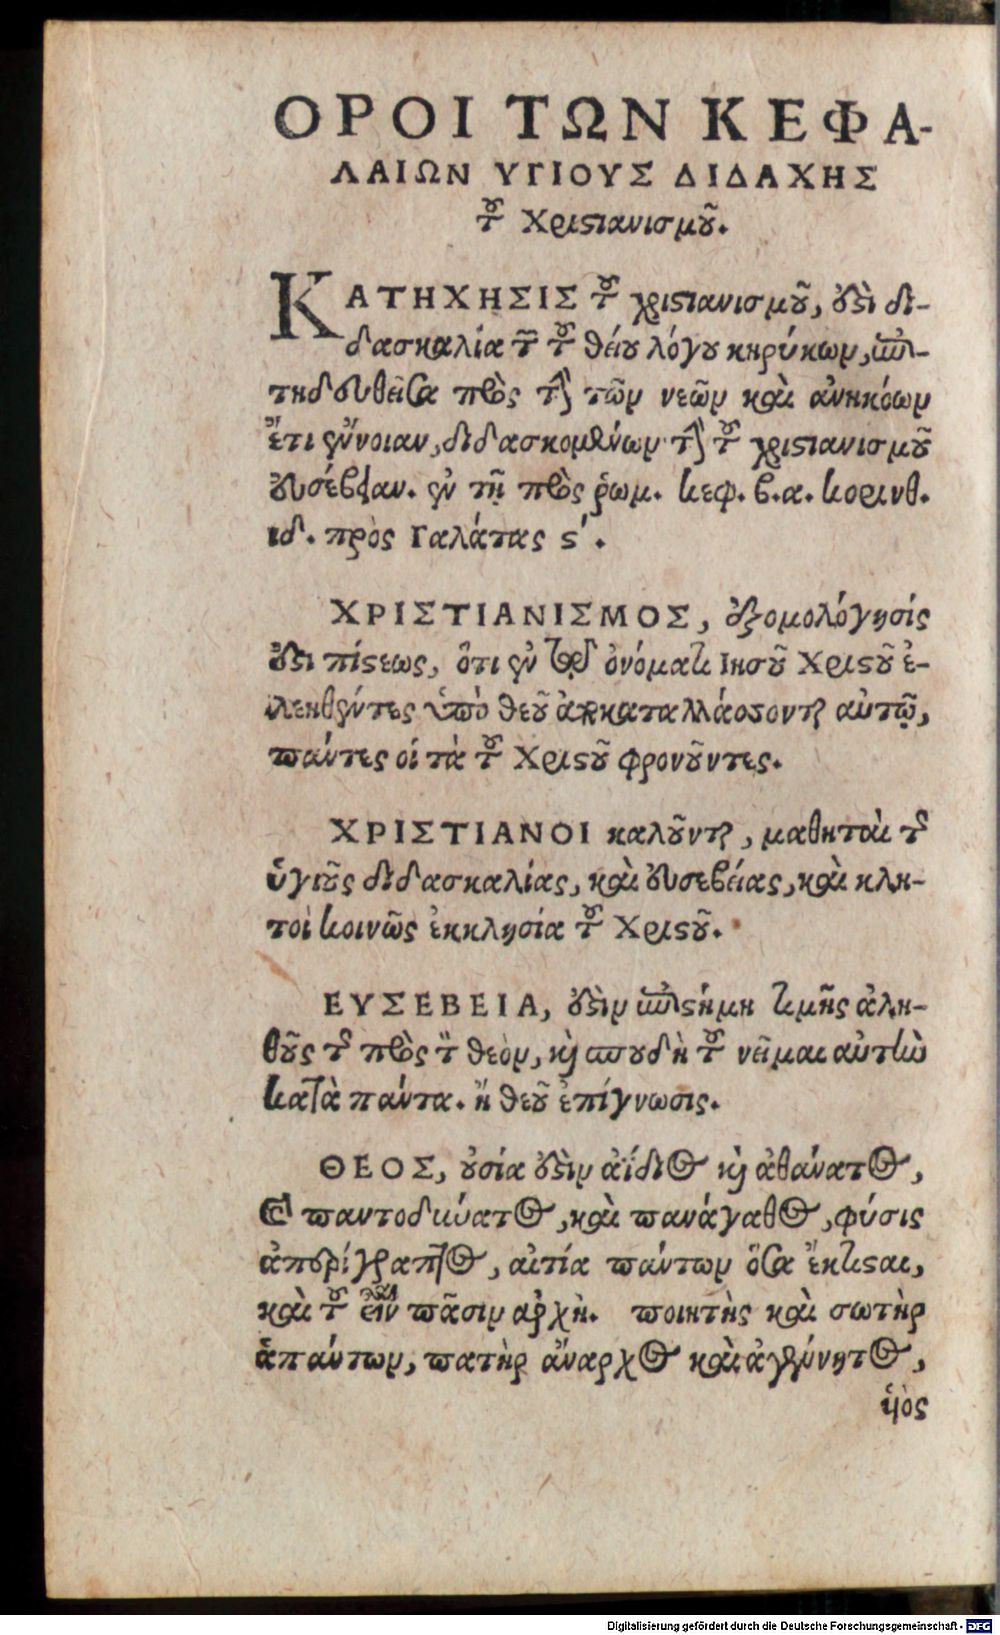 ΟΡΟΙ ΤΩΝ ΚΕΦΑ-
ΛΑΙΩΝ ΥΓΙΟΥΣ ΔΙΔΑΧΗΣ
τοῦ Χριστιανισμοῦ.
ΚΑΤΗΧΗΣΙΣ τοῦ χριστιανισμοῦ, ὅστι δι-
δασκαλία τῶν τοῦ θείου λόγου κηρύκων, ἐπι-
τηδευθεῖσα πρὸς τὴν τῶν νεῶν καὶ ἀνηκόων
ἔτι ἔννοιαν, διδασκομένων τὴν τοῦ χριστιανισμοῦ
εὐσέβειαν. ἐν τῇ πρὸς ῥωμ. κεφ. β. α. κορινθ.
ιδ. πρὸς Γαλάτας ϛ΄.
ΧΡΙΣΤΙΑΝΙΣΜΟΣ, ἐξομολόγησίς
ἐστι πίστεως, ὅτι ἐν τῷ ὀνόματι Ιησοῦ Χριστοῦ ἐ-
λεηθέντες ὑπὸ θεοῦ ἀποκαταλλάσσονται αὐτῷ,
πάντες οἱ τὰ τοῦ Χριστοῦ φρονοῦντες.
ΧΡΙΣΤΙΑΝΟΙ καλοῦνται, μαθηταὶ τῆς
ὑγιοῦς διδασκαλίας, καὶ εὐσεβείας, καὶ κλη-
τοὶ κοινῶς ἐκκλησία τοῦ Χριστοῦ.
ΕΥΣΕΒΕΙΑ, ἐστὶν ἐπιστήμη τιμῆς ἀλη-
θοῦς τῆς πρὸς τὸν θεὸν, καὶ σπουδὴ τοῦ νεῖμαι αὐτὴν
κατὰ πάντα. ἢ θεοῦ ἐπίγνωσις.
ΘΕΟΣ, οὐσία ἐστὶν ἀΐδιος καὶ ἀθάνατος,
παντοδύνατος, καὶ πανάγαθος, φύσις
ἀπερίγραπτος, αἰτία πάντων ὅσα ἔκτισαι,
καὶ τοῦ εἶναι πᾶσιν ἀρχὴ. ποιητὴς καὶ σωτὴρ
ἁπάντων, πατὴρ ἄναρχος καὶ ἀγέννητος,
ὑὸς
Digitalisierung gefördert durch die Deutsche Forschungsgemeinschaft - DFG